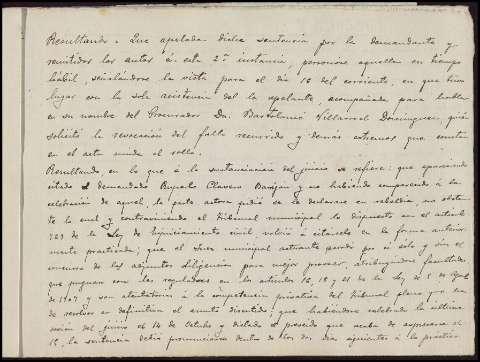 Resultando: Que apelada dicha sentencia por la demandante y
remitidos los autos á esta 2ª instancia, personose aquella en tiempo
hábil, señalándose la vista para el dia 16 del corriente, en que tuvo
lugar con la sola asistencia de la apelante, acompañada para hablar
en su nombre del Procurador Dn. Bartolomé Villarreal Dominguez, quien
solicitó la revocación del fallo recurrido y demás extremos que constan
en el acta unida al rollo.
Resultando, en lo que á la sustanciacion del juicio se refiere: que apareciendo
citado el demandado Ruperto Clavero y no habiendo comparecido á la
celebracion de aquel, la parte actora pidió se le declarase en rebeldia, no obstan-
te lo cual y contraviniendo el Tribunal municipal lo dispuesto en el articulo
729 de la Ley de Enjuiciamiento civil, volvió á citársele en la forma anterior-
mente practicada; que el Juez municipal actuante acordó por si sólo y sin el
concurso de los adjuntos diligencias para mejor proveer, atribuyéndose facultades
que pugnan con las reguladoras en los articulos 16, 18 y 21 de la Ley de 5 de Agosto
de 1907 y son atentatorias á la competencia privativa del Tribunal pleno que ha
de resolver en definitiva el asunto discutido; que habiéndose celebrado la última
sesión del juicio el 14 de Octubre y dictado el proveido que acaba de expresarse el
15, la sentencia debia pronunciarse dentro de los dos dias siguientes á la práctica